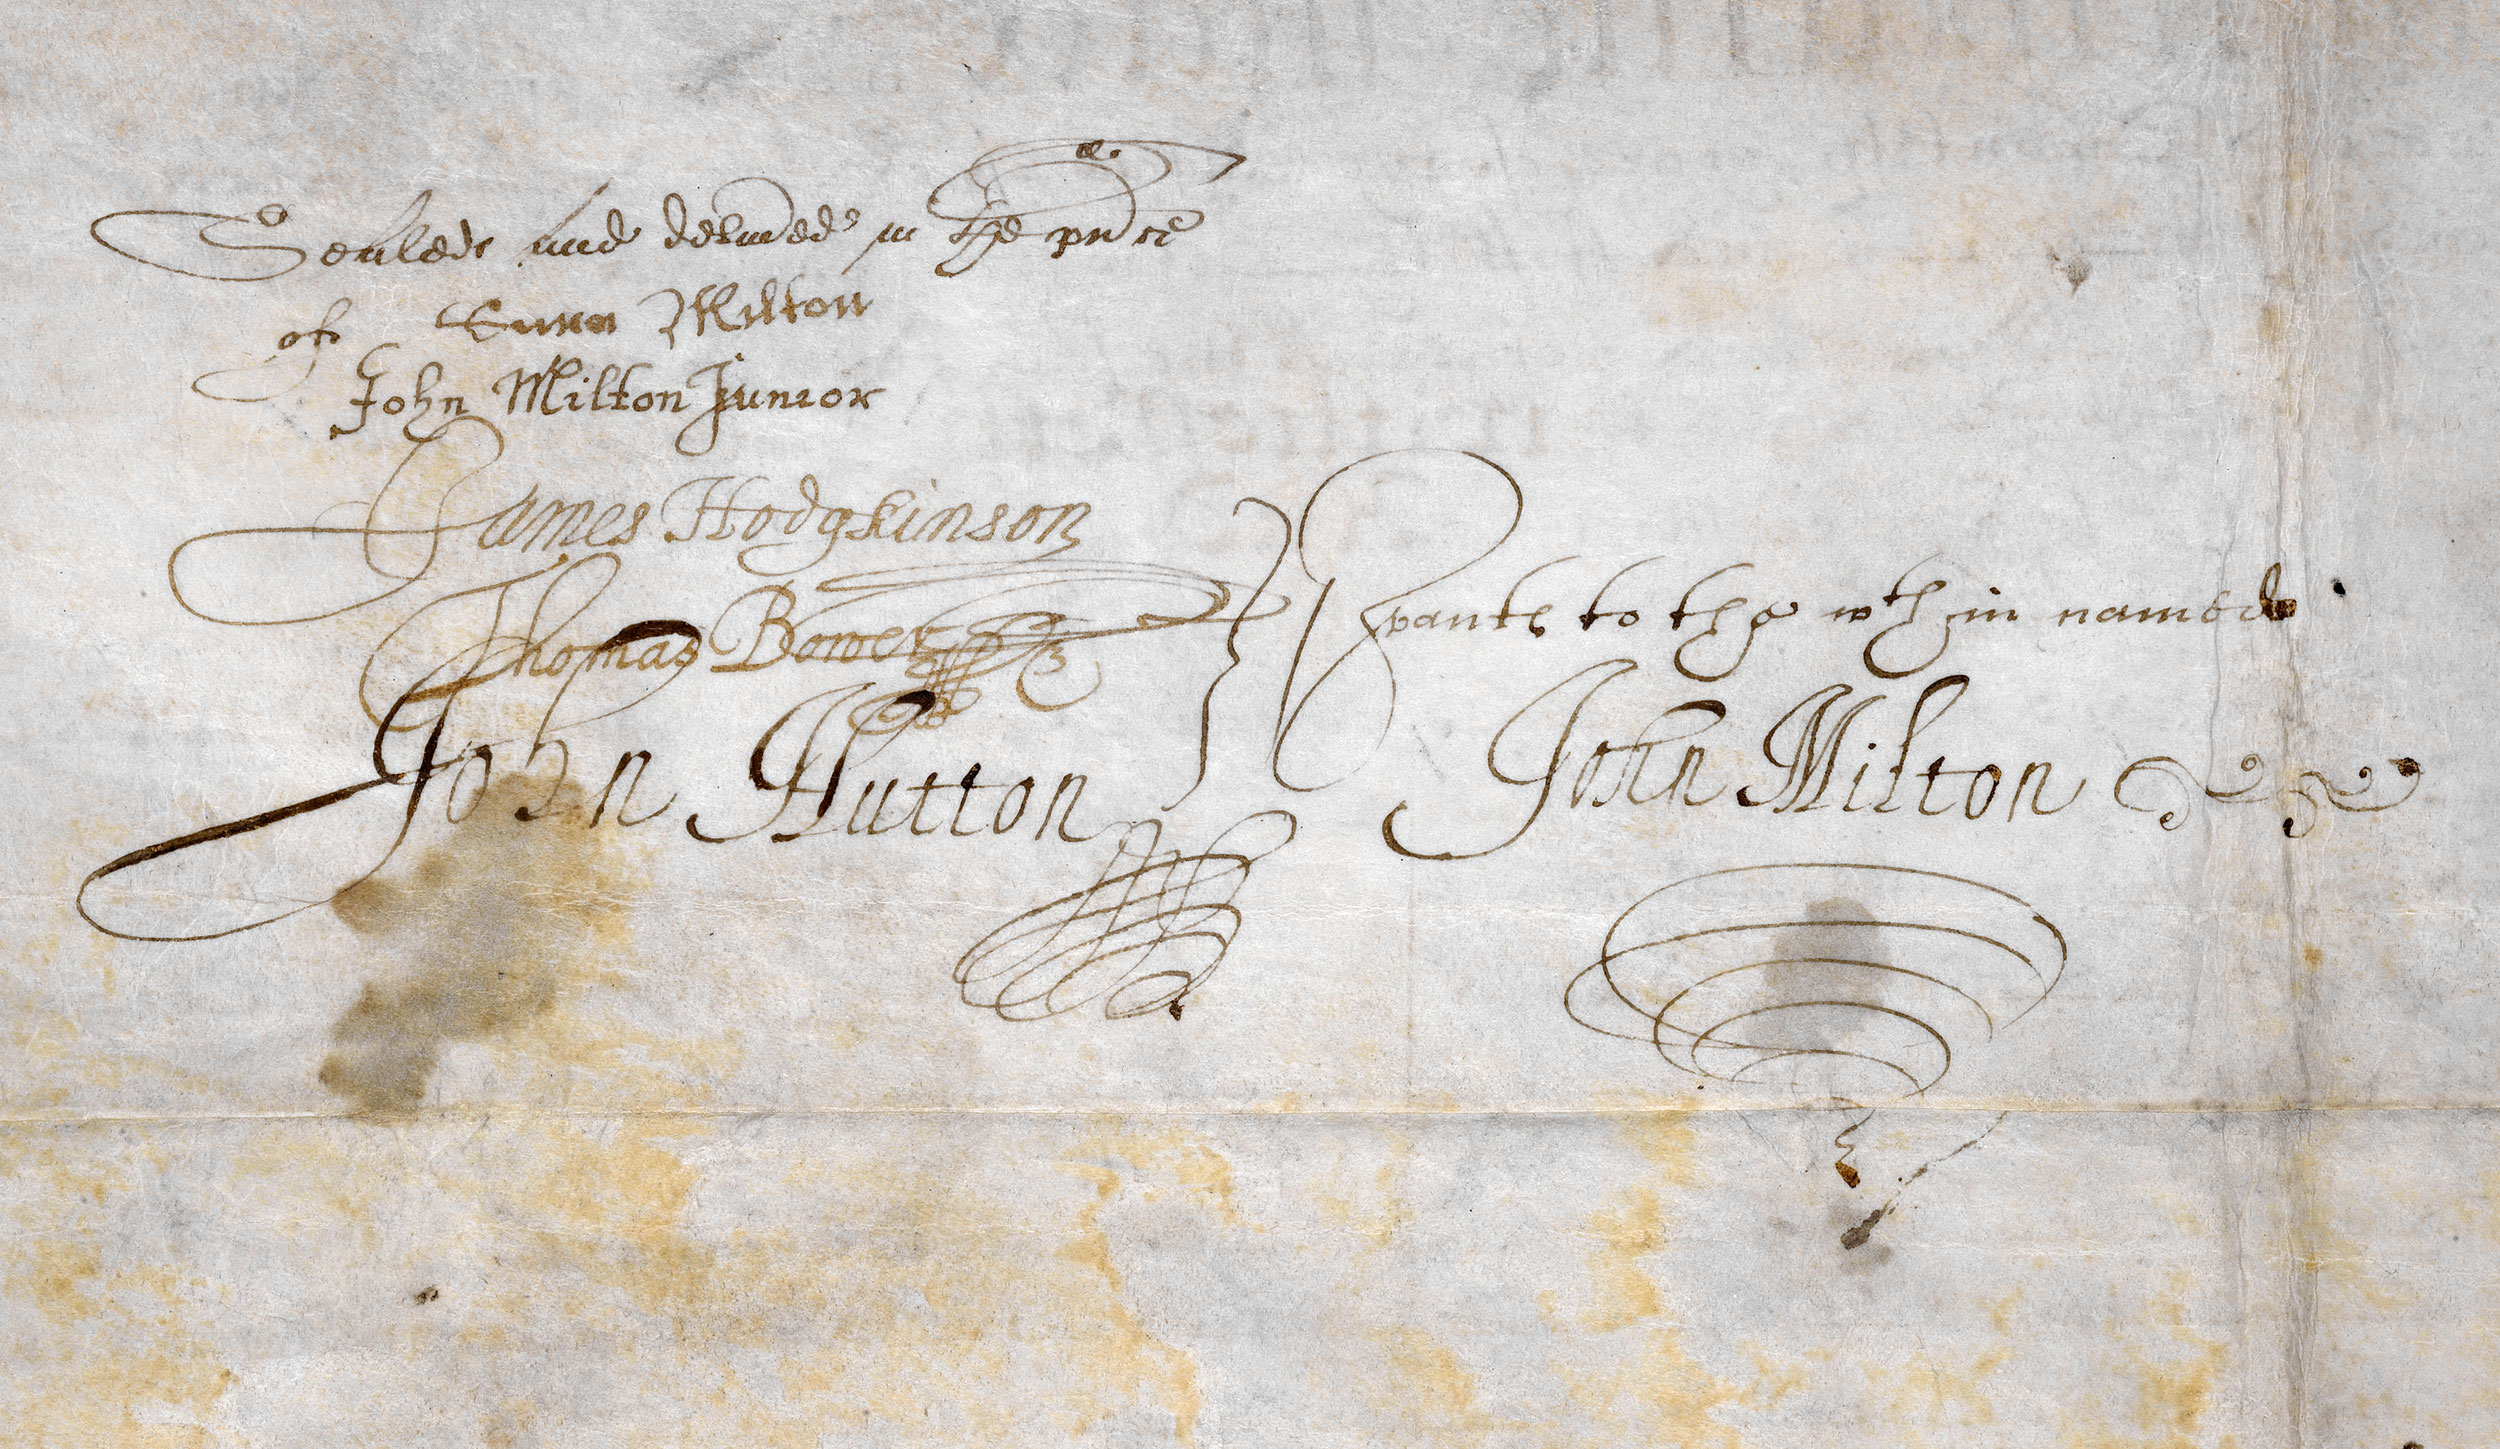 Sealed and deliued in the pnce
of Sara Milton
John Milton Junior
James Hodgkinson
Thomas Bower
John Hutton
Svants to the wthin named
John Milton